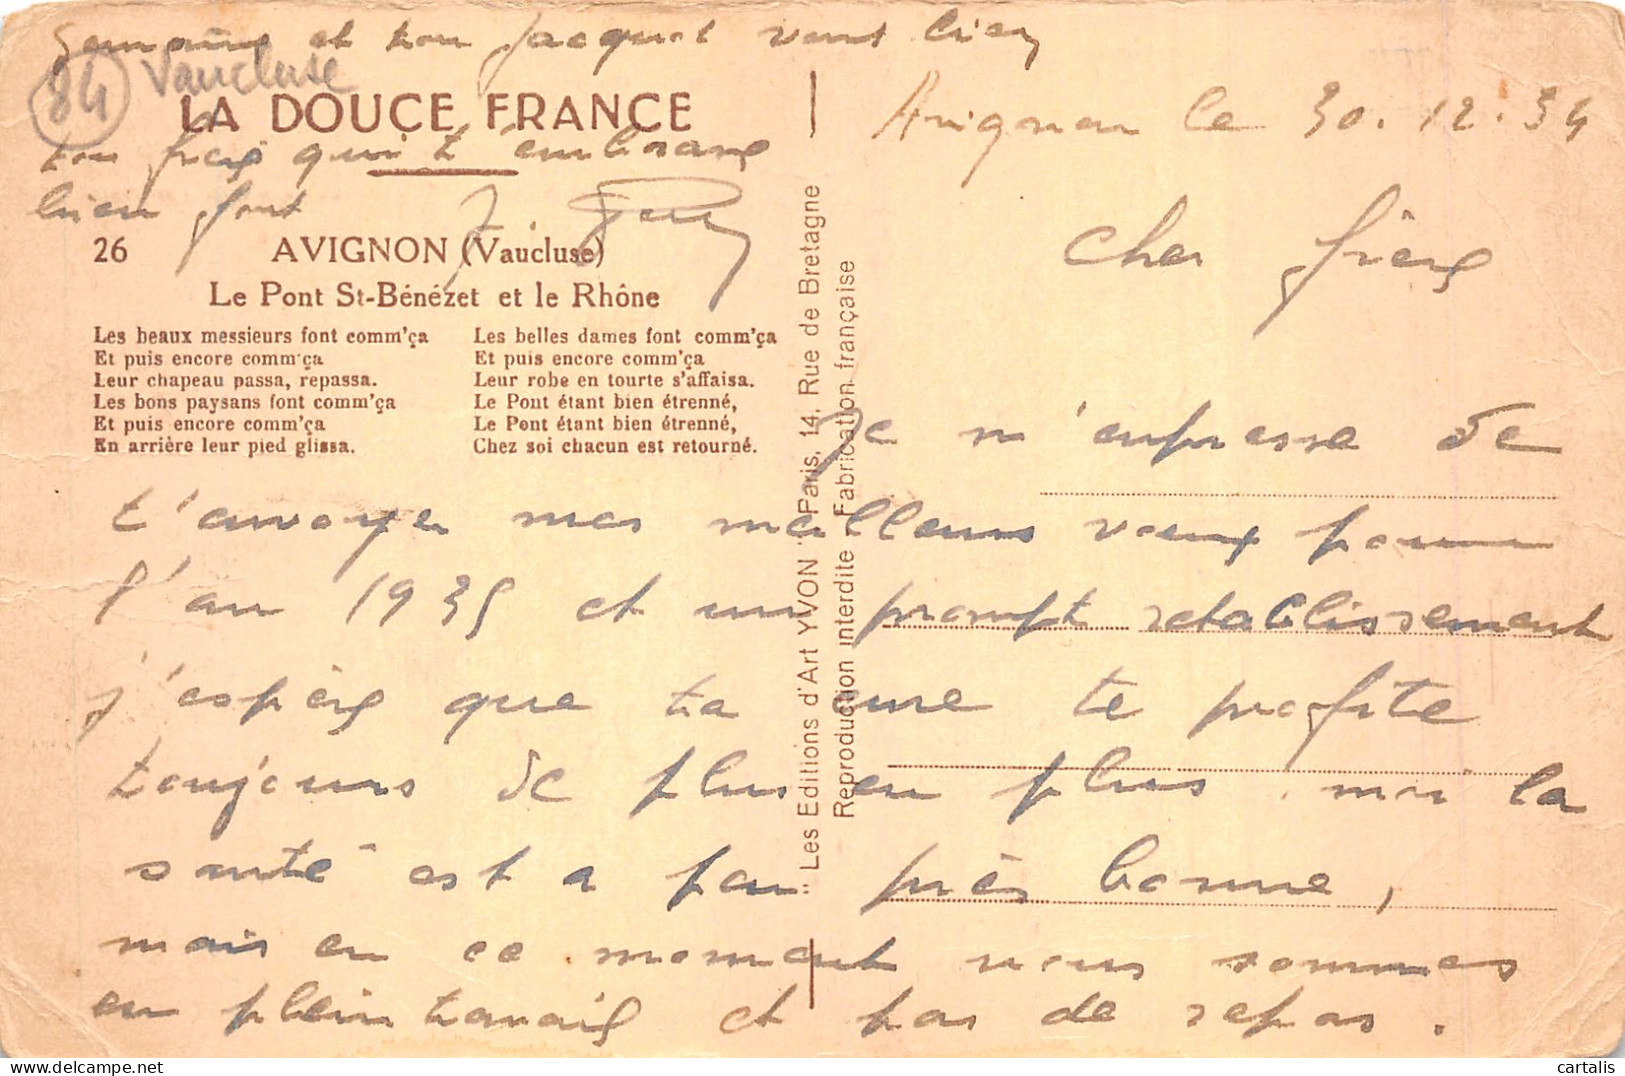 Germaine et ton Jacquot vont bien
84 Vaucluse
LA DOUCE FRANCE
ton frère qui t'embrasse
bien fort
26 AVIGNON (Vaucluse)
Le Pont St-Bénézet et le Rhône
Les beaux messieurs font comm'ça
Et puis encore comm'ça
Leur chapeau passa, repassa.
Les bons paysans font comm'ça
Et puis encore comm'ça
En arrière leur pied glissa.
Les belles dames font comm'ça
Et puis encore comm'ça
Leur robe en tourte s'affaisa.
Le Pont étant bien étrenné,
Le Pont étant bien étrenné,
Chez soi chacun est retourné.
Les Editions d'Art YVON Paris, 14, Rue de Bretagne
Reproduction interdite Fabrication française
Avignon le 30.12.34
Cher frère
Je m'empresse de
t'envoyer mes meilleurs vœux pour
l'an 1935 et un prompt retablissement
j'espère que ta cure te profite
toujours de plus en plus moi la
santé est a peu près bonne,
mais en ce moment nous sommes
en plein travail et pas de repos.
cartalis